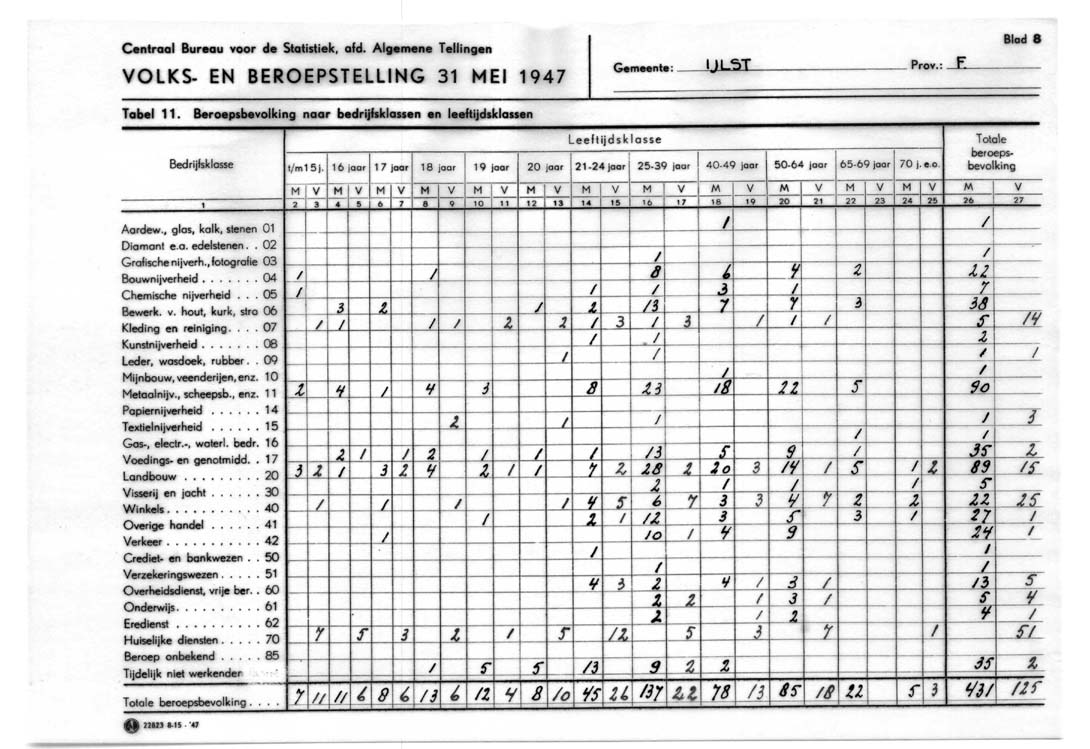 Blad 8
Centraal Bureau voor de Statistiek, afd. Algemene Tellingen
VOLKS- EN BEROEPSTELLING 31 MEI 1947
Gemeente: IJLST Prov.: F.
Tabel 11. Beroepsbevolking naar bedrijfsklassen en leeftijdsklassen
Bedrijfsklasse Leeftijdsklasse Totale beroeps-bevolking
t/m 15 j. 16 jaar 17 jaar 18 jaar 19 jaar 20 jaar 21-24 jaar 25-39 jaar 40-49 jaar 50-64 jaar 65-69 jaar 70 j. e.o.
M V M V M V M V M V M V M V M V M V M V M V M V M V
1 2 3 4 5 6 7 8 9 10 11 12 13 14 15 16 17 18 19 20 21 22 23 24 25 26 27
Aardew., glas, kalk, stenen 01 1 1
Diamant e.a. edelstenen. . 02
Grafische nijverh., fotografie 03 1 1
Bouwnijverheid . . . . . . . 04 1 1 8 6 4 2 22
Chemische nijverheid . . . 05 1 1 1 3 1 7
Bewerk. v. hout, kurk, stro 06 3 2 1 2 13 7 7 3 38
Kleding en reiniging. . . . 07 1 1 1 1 2 2 1 3 1 3 1 1 1 5 14
Kunstnijverheid . . . . . . 08 1 1 2
Leder, wasdoek, rubber. . 09 1 1 1 1
Mijnbouw, veenderijen, enz. 10 1 1
Metaalnijv., scheepsb., enz. 11 2 4 1 4 3 8 23 18 22 5 90
Papiernijverheid . . . . . . 14
Textielnijverheid . . . . . 15 2 1 1 1 3
Gas-, electr.-, waterl. bedr. 16 1 1
Voedings- en genotmidd. . 17 2 1 1 2 1 1 1 13 5 9 1 35 2
Landbouw . . . . . . . . . 20 3 2 1 3 2 4 2 1 1 7 2 28 2 20 3 14 1 5 1 2 89 15
Visserij en jacht . . . . . . 30 2 1 1 1 5
Winkels . . . . . . . . . . 40 1 1 1 1 4 5 6 7 3 3 4 7 2 2 22 25
Overige handel . . . . . . 41 1 2 1 12 3 5 3 1 27 1
Verkeer . . . . . . . . . . 42 1 10 1 4 9 24 1
Crediet- en bankwezen . . 50 1 1
Verzekeringswezen . . . . . 51 1 1
Overheidsdienst, vrije ber. . 60 4 3 2 4 1 3 1 13 5
Onderwijs. . . . . . . . . . 61 2 2 1 3 1 5 4
Eredienst . . . . . . . . . 62 2 1 2 4 1
Huiselijke diensten . . . . . 70 7 5 3 2 1 5 12 5 3 7 1 51
Beroep onbekend . . . . . 85
Tijdelijk niet werkenden 1 5 5 13 9 2 2 35 2
Totale beroepsbevolking. . . . 7 11 11 6 8 6 13 6 12 4 8 10 45 26 137 22 78 13 85 18 22 5 3 431 125
22823 8-15 - '47